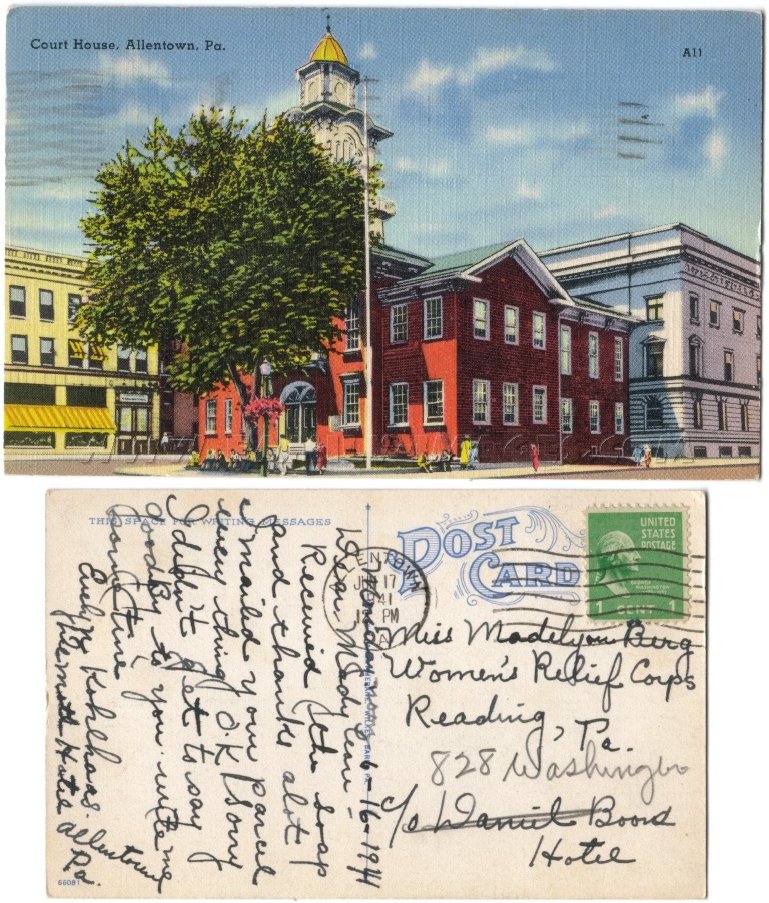 Court House, Allentown, Pa.
A11
THIS SPACE FOR WRITING MESSAGES
POST CARD
ALLENTOWN
JUN 17
12 PM
1941
PA.
UNITED STATES POSTAGE
GEORGE WASHINGTON
1 CENT 1
6-16-1941
Dear Madylean-
Received the soap
and thanks alot
mailed your parcel
every thing O.K Sorry
I didn't get to say
goodby to you. write me
sometime
Evelyn Kohlhaas.
Hotel Allentown
Pa.
Miss Madelyon Berg
Women's Relief Corps
Reading, Pa.
828 Washington
c/o Daniel Boone
Hotel
66081